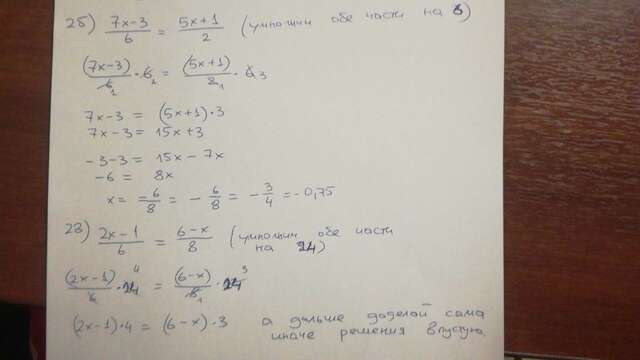 25) (7x-3)/6 = (5x+1)/2 (умножим обе части на 6)
(7x-3)/6 · 6 = (5x+1)/2 · 6 3
7x-3 = (5x+1)·3
7x-3 = 15x+3
-3-3 = 15x-7x
-6 = 8x
x = -6/8 = -6/8 = -3/4 = -0,75
23) (2x-1)/6 = (6-x)/8 (умножим обе части
на 24)
(2x-1)/6 · 24 4 = (6-x)/8 · 24 3
(2x-1)·4 = (6-x)·3 а дальше доделай сама
иначе решения впустую.